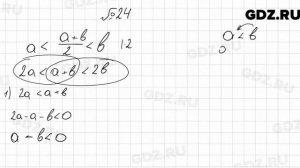 GDZ.RU
№24
a < (a+b)/2 < b |·2
a < b
0
2a < a+b < 2b
1) 2a < a+b
2a-a-b<0
a-b<0
GDZ.RU